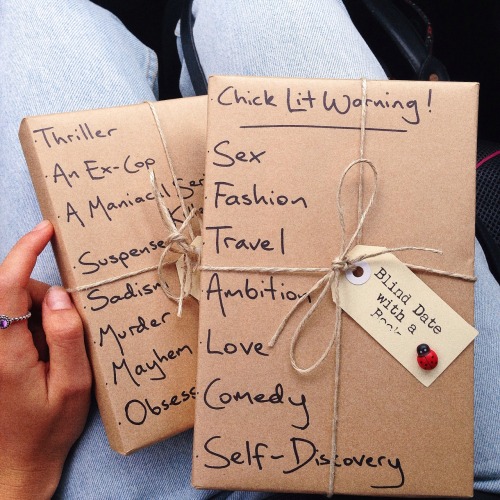 Thriller
An Ex-Cop
A Maniacal
Suspense
Sadism
Murder
Mayhem
Obsess
Chick Lit Warning!
Sex
Fashion
Travel
Ambition
Love
Comedy
Self-Discovery
Blind Date
with a